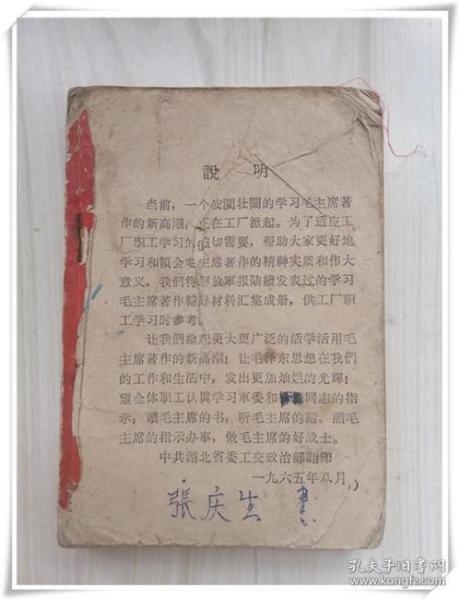 說 明
当前，一个波瀾壮闊的学习毛主席著
作的新高潮，正在工厂掀起。为了适应工
厂职工学习的迫切需要，帮助大家更好地
学习和領会毛主席著作的精神实质和伟大
意义，我們将解放軍报陆續发表过的学习
毛主席著作輔导材料汇集成册，供工厂职
工学习时参考。
让我們掀起更大更广泛的活学活用毛
主席著作的新高潮；让毛泽东思想在我們
的工作和生活中，发出更加灿烂的光輝；
望全体职工认真学习軍委和同志的指
示：讀毛主席的书，听毛主席的話，照毛
主席的指示办事，做毛主席的好战士。
中共湖北省委工交政治部翻印
一九六五年八月
張庆生
孔夫子旧书网
www.kongfz.com